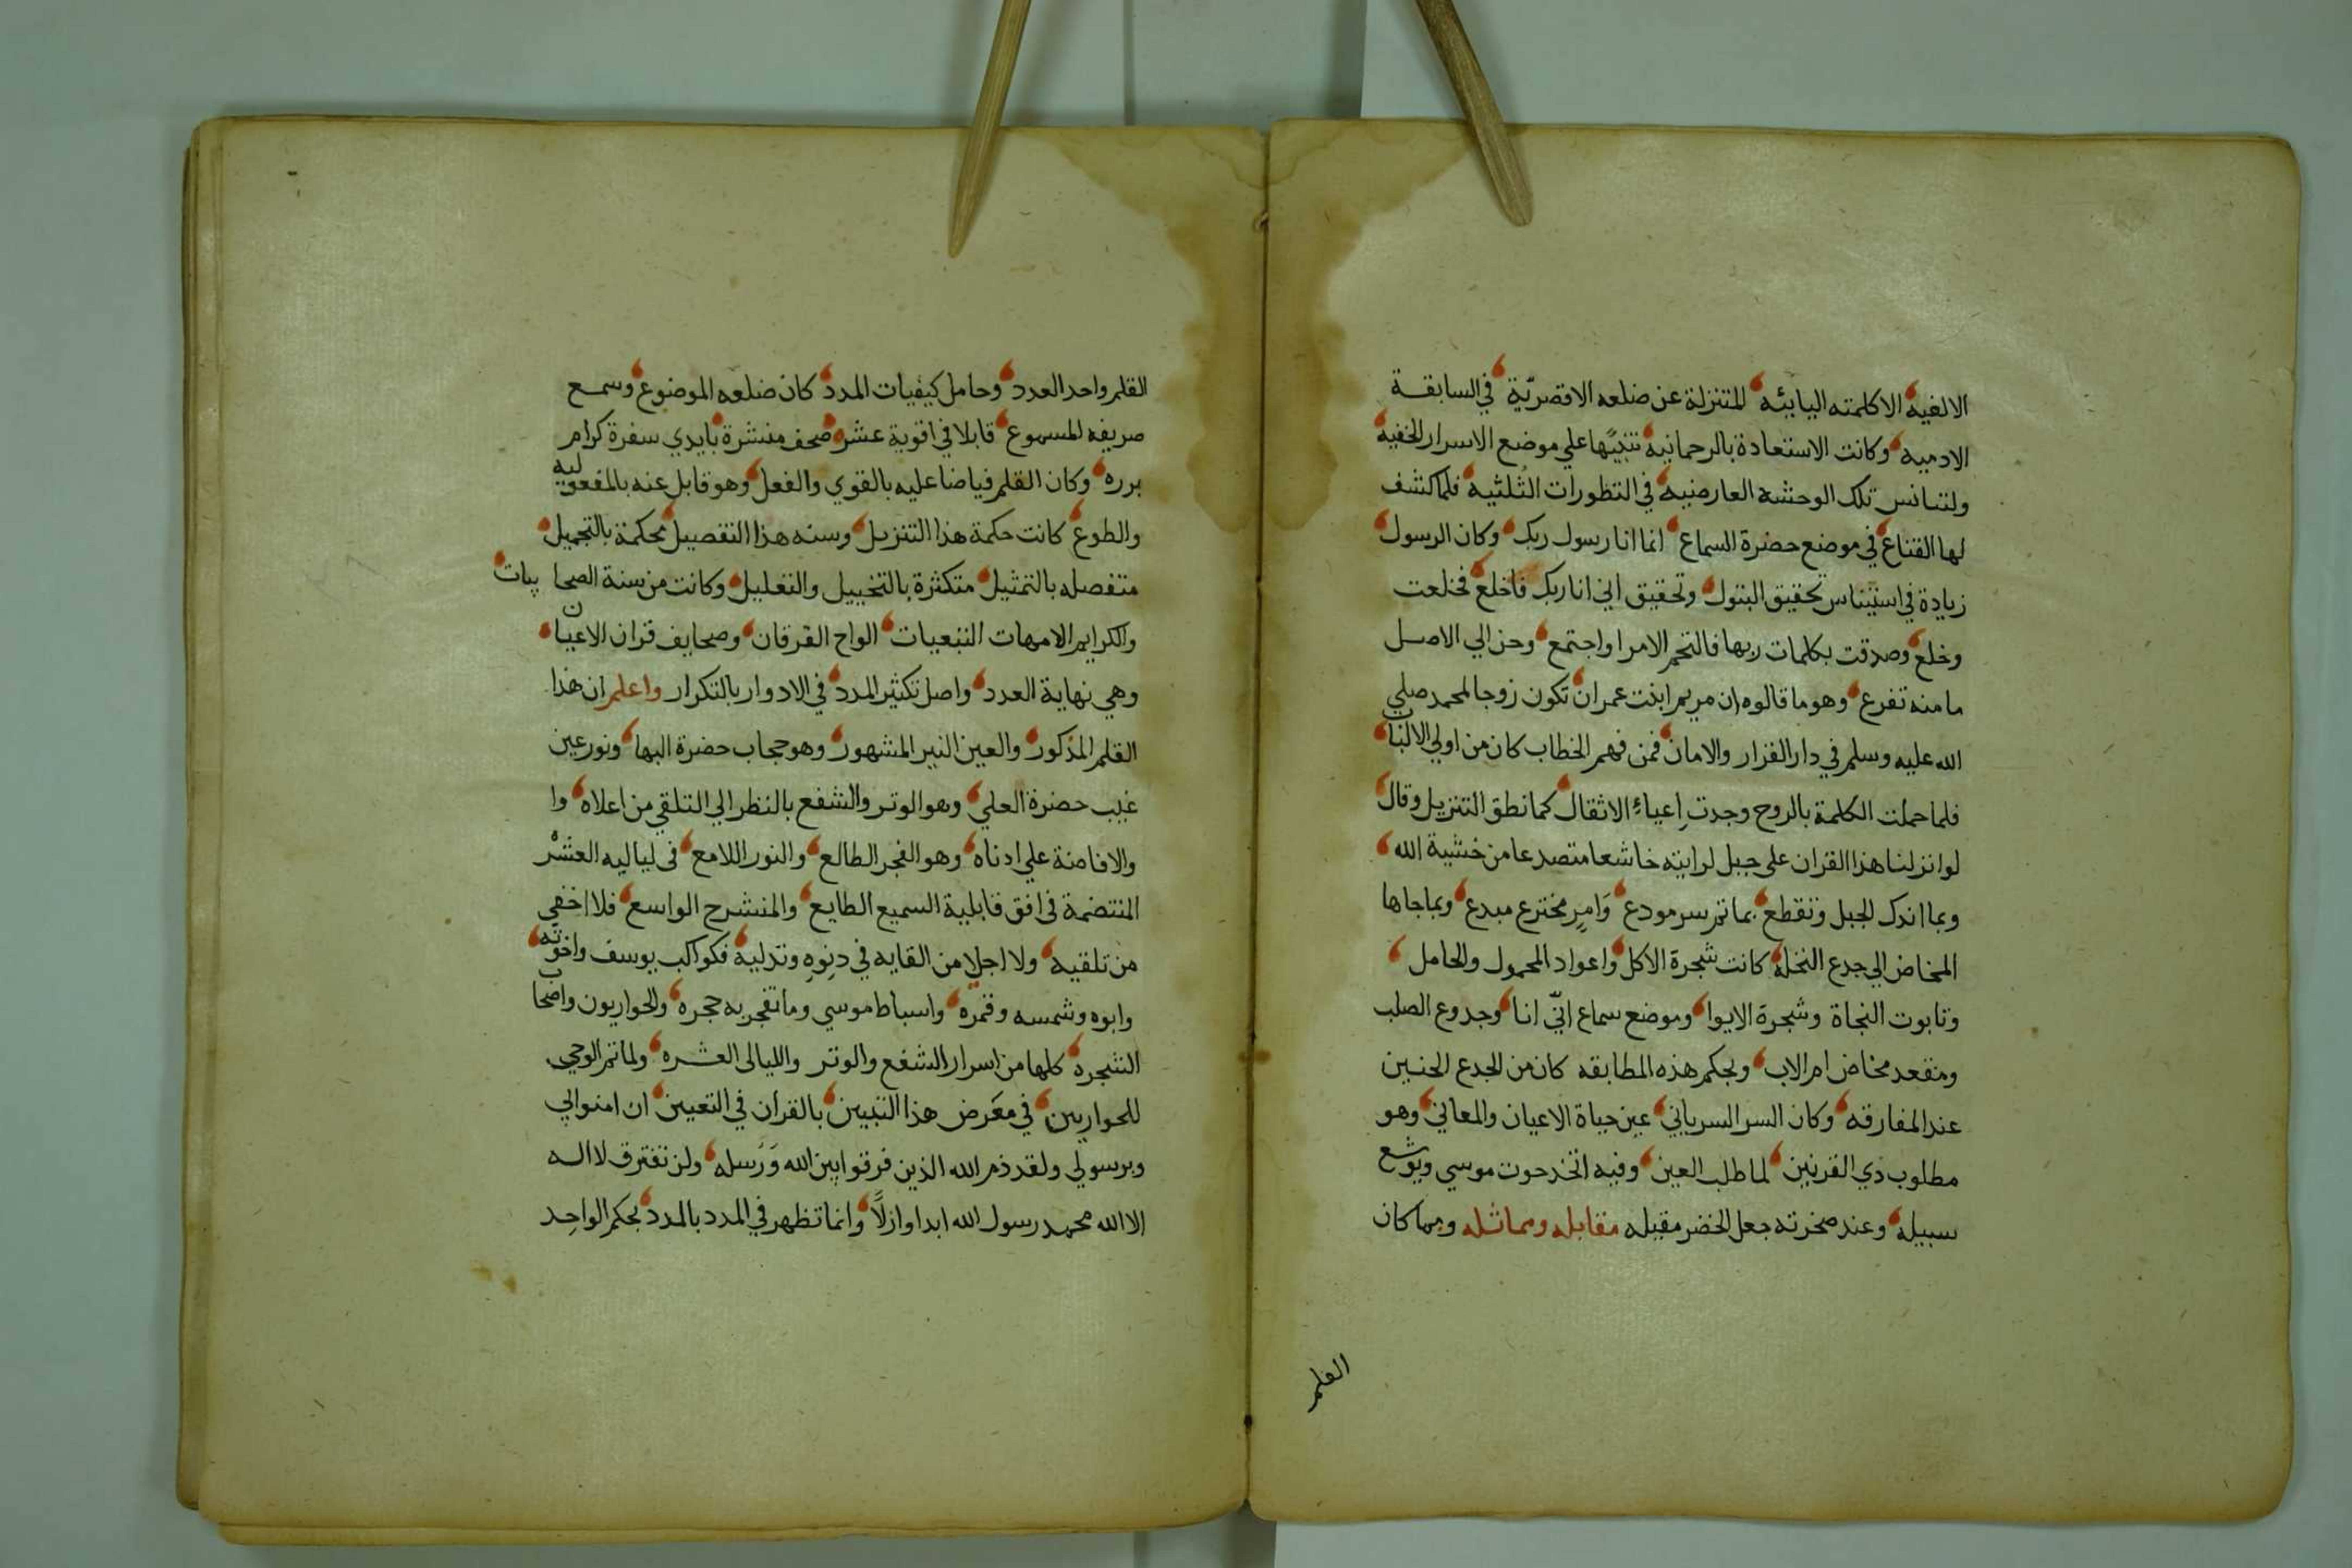 الالفيه الا كلمته اليائيه المتنزلة عن ضلعه الاقصريّة في السابقة
الادميه وكانت الاستعاذة بالرحمانيه تنبيًها علي موضع الاسرار الخفيه
ولتتانس تلك الوحشه العارضيه في التطورات الثُلثيه فلما كشف
لها القناع في موضع حضرة السماع انما انا رسول ربك وكان الرسول
زيادة في استيناس تحقيق البتول وتحقيق اني انا ربك فاخلع فخلعت
وخلع وصدقت بكلمات ربها فالتحم الامر واجتمع وحن الي الاصل
ما منه تفرع وهو ما قالوه ان مريم ابنت عمران تكون زوجا لمحمد صلي
الله عليه وسلم في دار القرار والامان فمن فهم الخطاب كان من اولي الالباب
فلما حملت الكلمة بالروح وجدت اعياء الاثقال كما نطق التنزيل وقال
لو انزلنا هذا القران على جبل لرايته خاشعا متصدعا من خشية الله
وبما اندك الجبل وتقطع بما تم سر مودع وَامرٍ مخترع مبدع وبما جاها
المخاض الي جدع النخلة كانت شجرة الاكل واعواد المحمول والحامل
وتابوت النجاة وشجرة الايوا وموضع سماع انّي انا وجدوع الصلب
ومقعد مخاض ام الاب وبحكم هذه المطابقه كان من الجدع الحنين
عند المفارقه وكان السر السرياني عين حياة الاعيان والمعاني وهو
مطلوب دي القرنين لما طلب العين وفيه اتخد حوت موسي ويوشع
سبيله وعند صخرته جعل الخضر مقبله مقابله ومماثله وبما كان
القلم
القلم واحد العدد وحامل كيفيات المدد كان ضلعه الموضوع وسمع
صريفه المسموع قابلا في اقوية عشر صحف منشرة بايدي سفرة كرام
برره وكان القلم فياضا عليه بالقوي والفعل وهو قابل عنه بالمفعوليه
والطوع كانت حكمة هذا التنزيل وسنه هذا التفصيل محكمة بالتجميل
متفصله بالتمثيل متكثرة بالتخييل والتعليل وكانت من سنة الصحابيات
والكرايم الامهات التبعيات الواح الفرقان وصحايف قران الاعيان
وهي نهاية العدد واصل تكثير المدد في الادوار بالتكرار واعلم ان هذا
القلم المذكور والعين النير المشهور وهو حجاب حضرة البها ونور عين
غيب حضرة العلي وهو الوتر والشفع بالنظر الي التلقي من اعلاه وا
والافاضة علي ادناه وهو الفجر الطالع والنور اللامع في لياليه العشر
المنتضمة في افق قابلية السميع الطايع والمنشرح الواسع فلا اخفي
من تلقيه ولا اجلا من القايه في دنوه وتدليه فكواكب يوسف واخوته
وابوه وشمسه وقمره واسباط موسي وما تفجر به حجره والحواريون واصحاب
الشجرة كلها من اسرار الشفع والوتر والليالى العشره ولما تم الوحي
للحواريين في معرض هذا التبيين بالقران في التعيين ان امنوا بي
وبرسولي ولقد ذم الله الذين فرقوا بين الله وَرُسله ولن تفترق لا اله
الا الله محمد رسول الله ابدا وازلاً وانما تظهر في المدد بالمدد بحكم الواحد